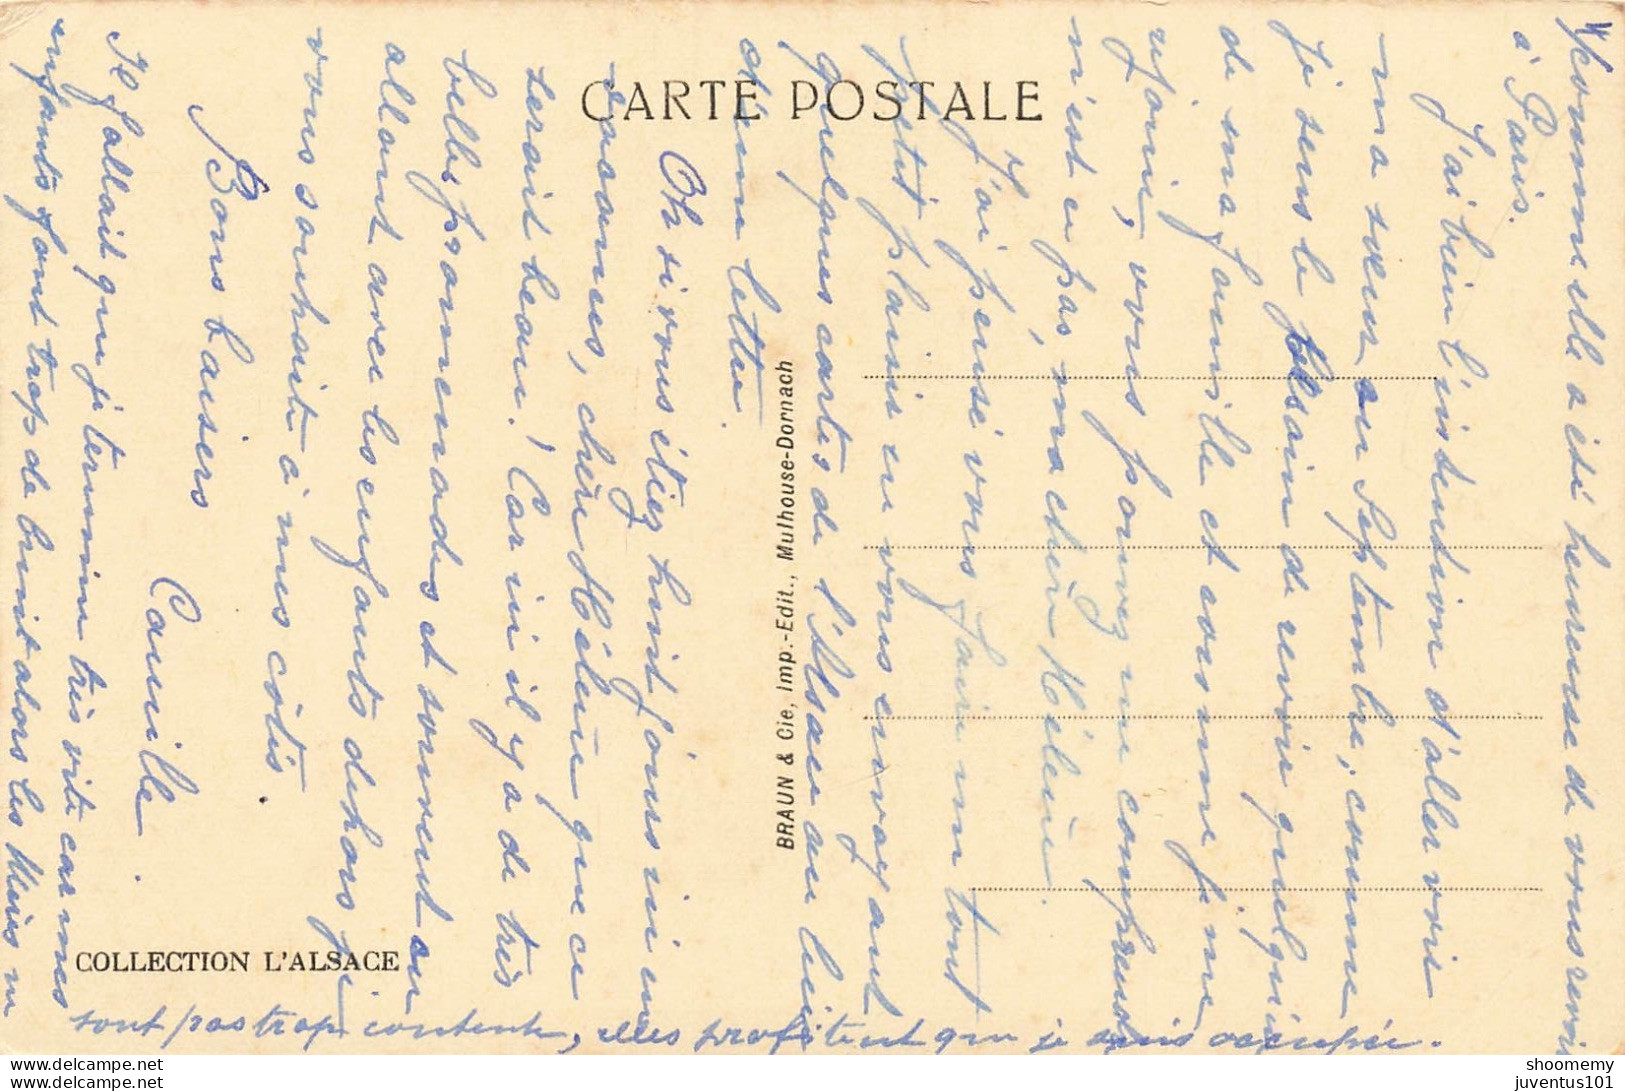 CARTE POSTALE
comme elle a été heureuse de vous revoir
à Paris.
J'ai bien l'intention d'aller voir
ma sœur en Septembre, comme
je sens le besoin de revoir quelqu'un
de ma famille et comme je me
réjouis, vous pouvez me comprendre
n'est-ce pas, ma chère Hélène.
J'ai pensé vous faire un tout
petit plaisir en vous envoyant
quelques cartes de l'Alsace au lieu
d'une lettre.
Oh si vous étiez huit jours ici en
vacances, chère Hélène que ce
serait beau! Car ici il y a de très
belles promenades et souvent en
allant avec les enfants dehors je
vous souhaite à mes côtés.
Bons baisers
Camille.
Il fallait que je termine très vite car mes
enfants font trop de bruit alors les Miens ne
sont pas trop contents, elles profitent que je suis occupée.
BRAUN & Cie, Imp.-Edit., Mulhouse-Dornach
COLLECTION L'ALSACE
shoomemy
juventus101